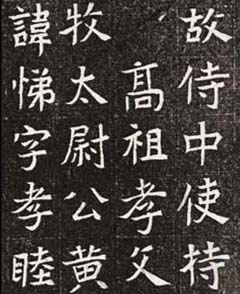 故侍中使持
髙祖孝父
牧太尉公黄
諱悌字孝睦